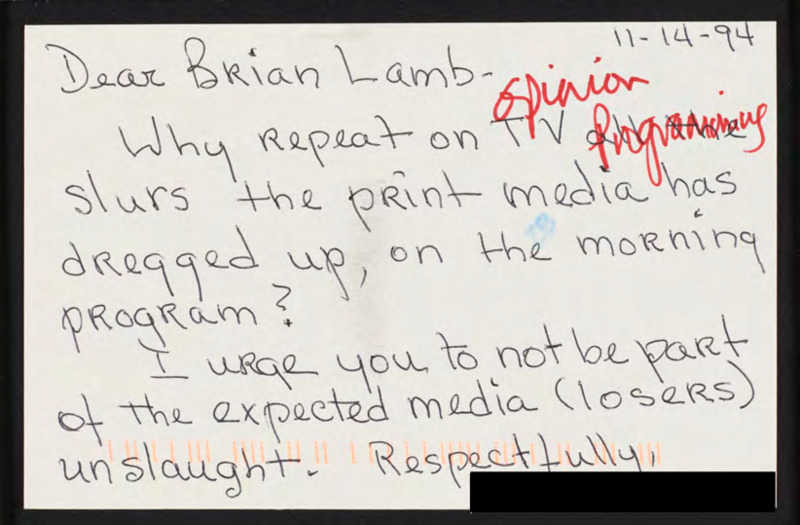 11-14-94
Dear Brian Lamb-
opinion
programming
Why repeat on TV all the
slurs the print media has
dregged up, on the morning
program?
I urge you to not be part
of the expected media (losers)
unslaught. Respectfully,